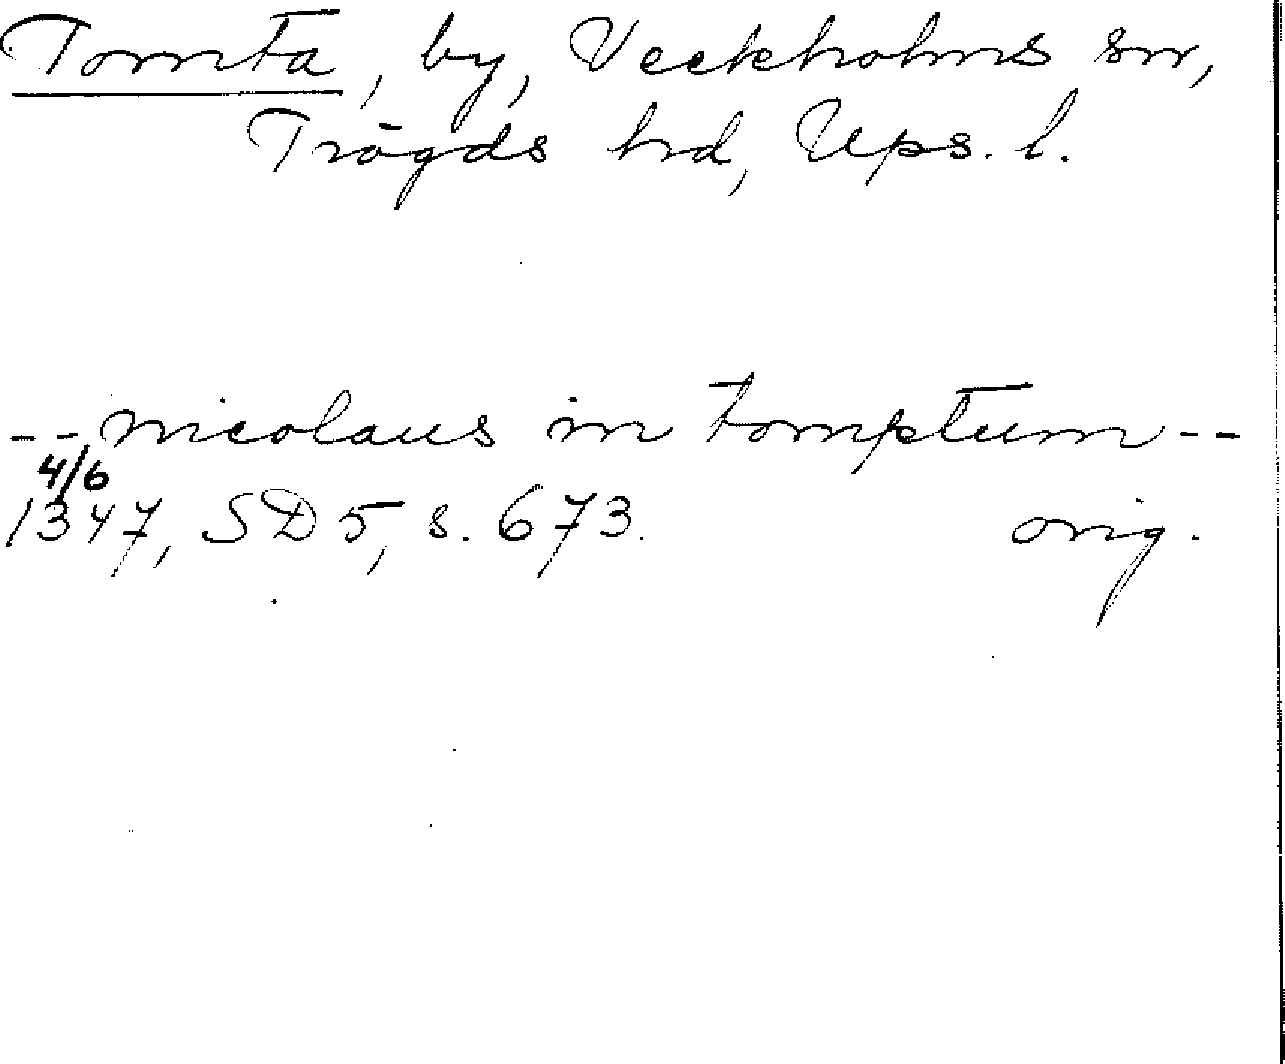 Tomta, by, Veckholms sn,
Trögds hd, Ups. l.
-- nicolaus in tomptum --
4/6
1347, SD 5, s. 673. orig.